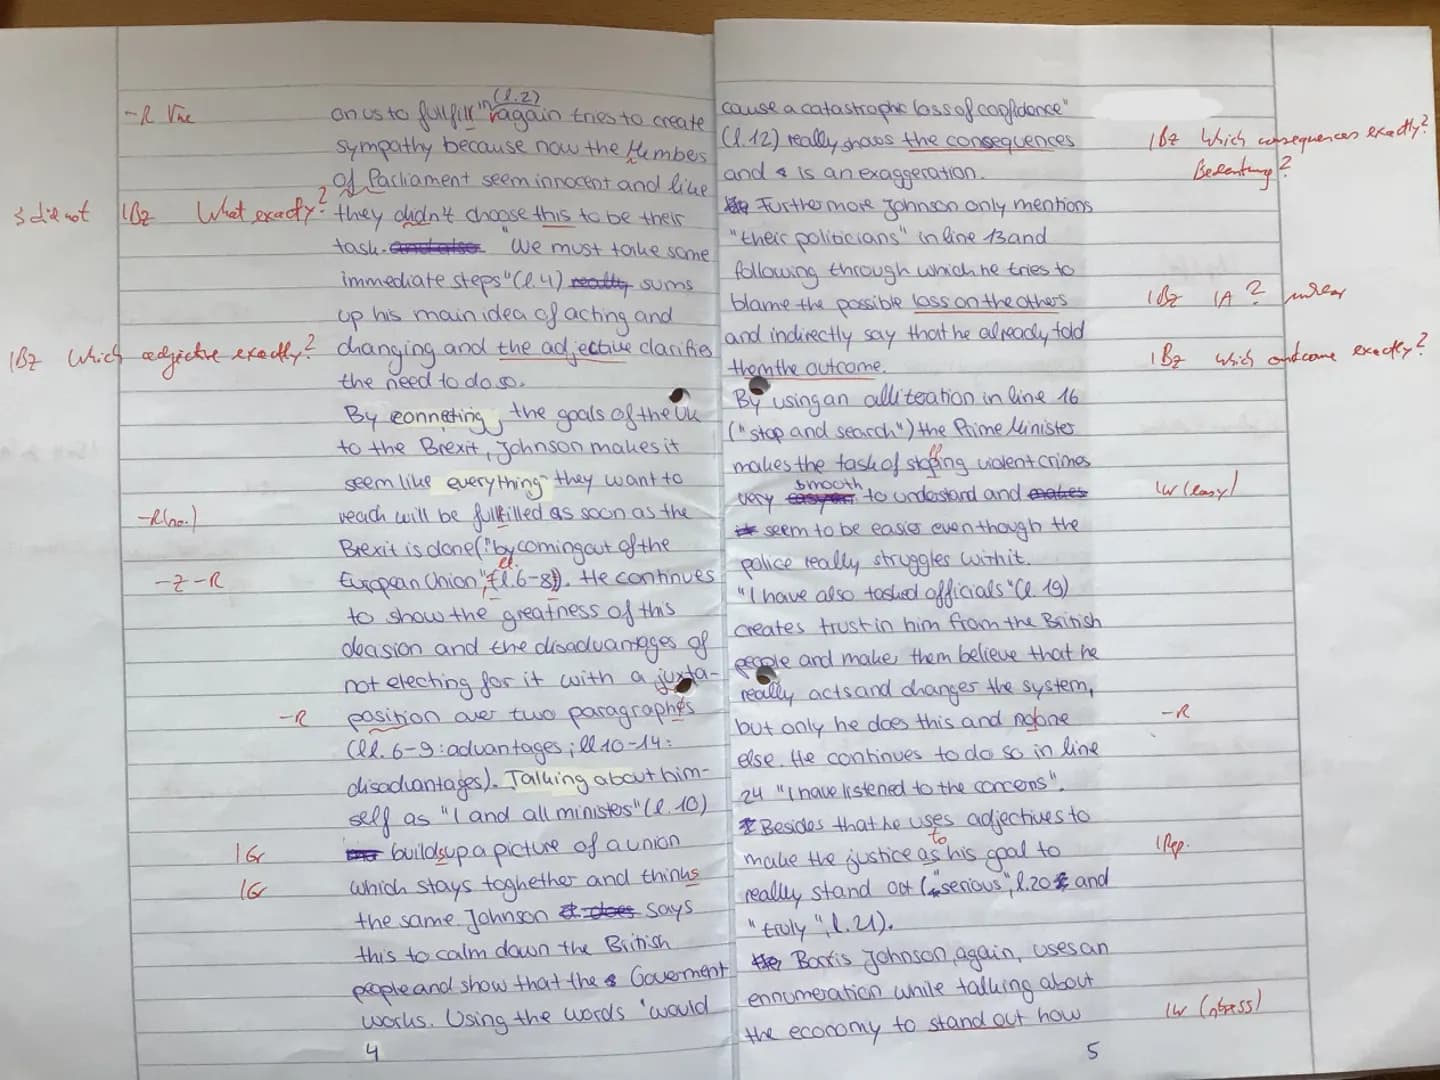 (l.2)
-R
on us to fulfill" in again tries to create
sympathy because now the Members
of Parliament seem innocent and like
s did not
|Bz What exactly?
they didn't choose this to be their
task. "We must take some
immediate steps" (l.4) really sums
up his main idea of acting and
|Bz Which adjective exactly?
changing and the adjective clarifies
the need to do so.
By conneting the goals of the UK
to the Brexit, Johnson makes it
seem like everything they want to
-R
reach will be fulfilled as soon as the
Brexit is done ("by coming out of the
-Z -R
European Union", ll. 6-8). He continues
to show the greatness of this
decision and the disadvantages of
not electing for it with a juxta-
-R
position over two paragraphes
(ll. 6-9: advantages; ll 10-14:
disadvantages). Talking about him-
self as "I and all ministers" (l. 10)
|Gr
builds up a picture of a union
|Gr
which stays toghether and thinks
the same. Johnson does says
this to calm down the British
people and show that the Goverment
works. Using the words "would
4
cause a catastrophic loss of confidence"
(l.12) really shows the consequences
|Bz Which consequences exactly?
Bedeutung?
and is an exaggeration.
Furthermore Johnson only mentions
"their politicians" in line 13 and
following through which he tries to
blame the possible loss on the others
|Bz |A ? unclear
and indirectly say that he already told
them the outcome.
|Bz which outcome exactly?
By using an alliteration in line 16
("stop and search") the Prime Minister
makes the task of stoping violent crimes
smooth
very to understand and makes
|W (easy)
it seem to be easier even though the
police really struggles with it.
"I have also tasked officials" (l. 19)
creates trust in him from the British
people and make them believe that he
really acts and changes the system,
but only he does this and noone
-R
else. He continues to do so in line
24 "I have listened to the concerns".
Besides that he uses adjectives to
to
make the justice as his goal to
|Rep.
really stand out ("serious", l.20 and
"truly", l. 21).
Borris Johnson, again, uses an
ennumeration while talking about
the economy to stand out how
|W (stress)
5